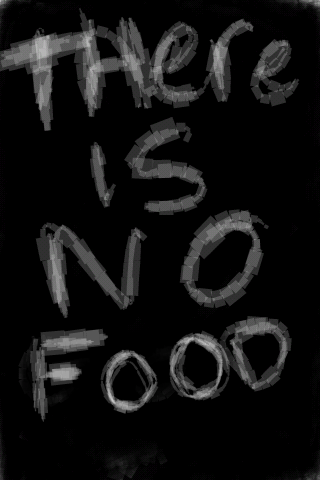 THere
iS
NO
FOOD